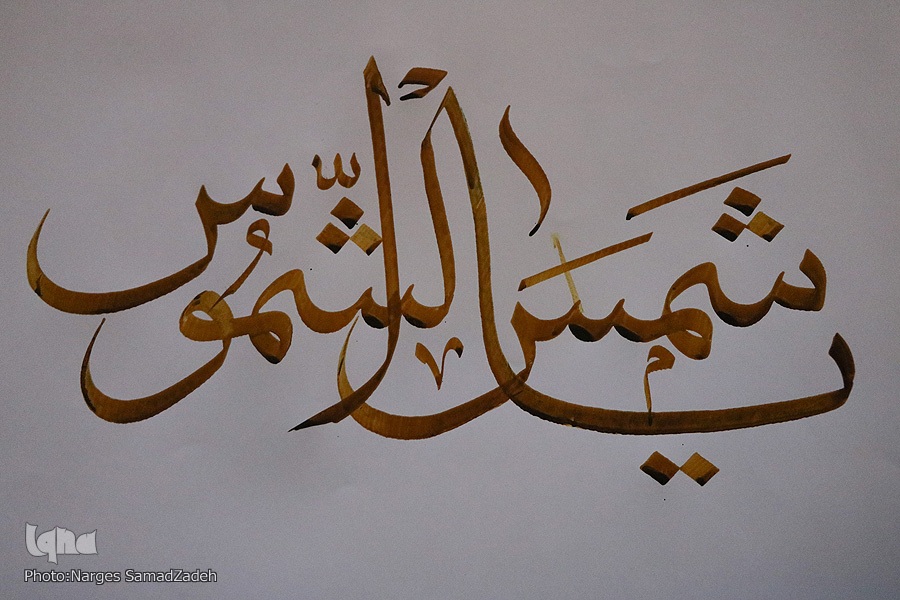 یا شَمسَ الشّموُس
Iqna
Photo:Narges SamadZadeh